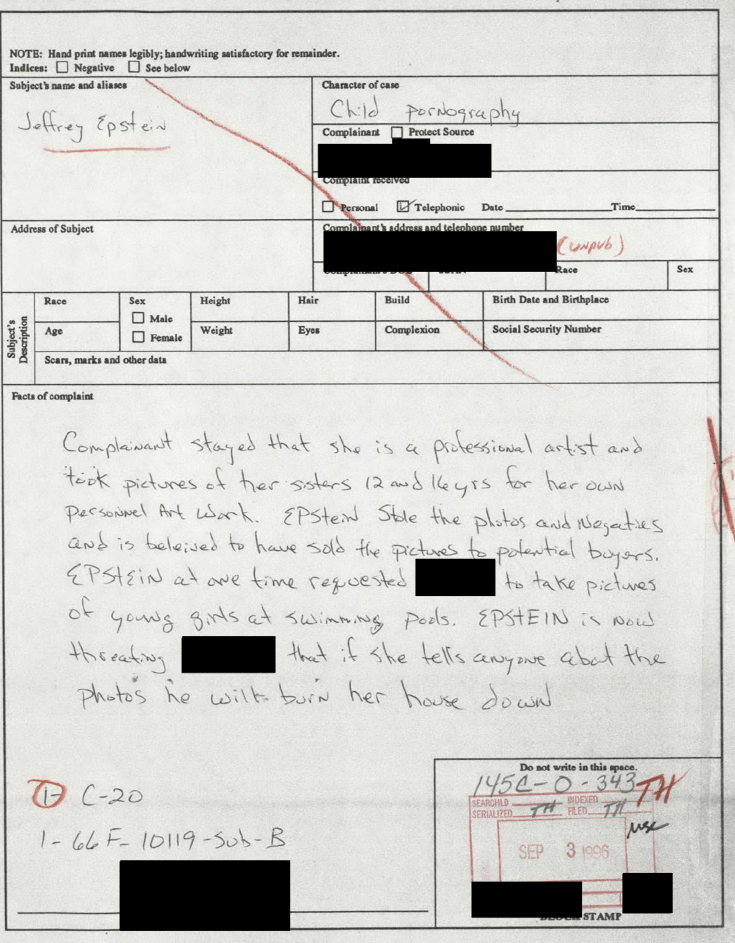 NOTE: Hand print names legibly; handwriting satisfactory for remainder.
Indices: Negative See below
Subject's name and aliases
Jeffrey Epstein
Character of case
Child Pornography
Complainant Protect Source
Complaint received
Personal Telephonic Date Time
Address of Subject
Complainant's address and telephone number
(unpub)
Race
Sex
Subject's Description
Race
Sex
Male
Female
Height
Hair
Build
Birth Date and Birthplace
Age
Weight
Eyes
Complexion
Social Security Number
Scars, marks and other data
Facts of complaint
Complainant stayed that she is a professional artist and
took pictures of her sisters 12 and 16 yrs for her own
personnel Art work. EPStein Stole the photos and Negaties
and is beleived to have sold the pictures to potential buyers.
EPStEiN at one time requested to take pictures
of young girls at swimming pools. EPSTEIN is now
threating that if she tells anyone about the
photos he will burn her house down
1- C-20
1-66F-10119-Sub-B
Do not write in this space.
145C-0-343
TH
SEARCHED INDEXED
SERIALIZED TH FILED TH
SEP 3 1996
BLOCK STAMP